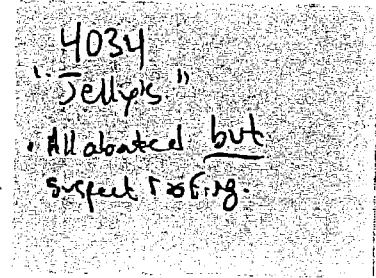 4034
"Jelly's"
• All abated but
suspect roofing.